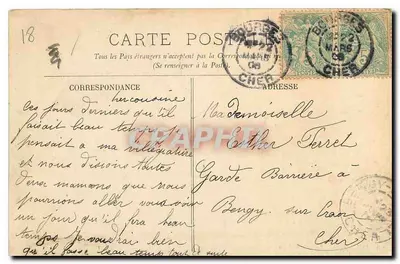 18
CARTE POSTALE
Tous les Pays étrangers n'acceptent pas la Correspondance
(Se renseigner à la Poste).
BOURGES
MARS
CHER
BOURGES
MARS
CHER
CORRESPONDANCE
ADRESSE
Ces jours derniers qu'il
faisait beau temps
pensait a ma
et nous disions toutes
deux maman que nous
pourrions aller vous voir
un jour qu'il fera beau
temps. Je voudrais bien
qu'il fasse beau temps tout
Mademoiselle
Esther Ferret
Garde Barrière à
Bengy sur Craon
Cher